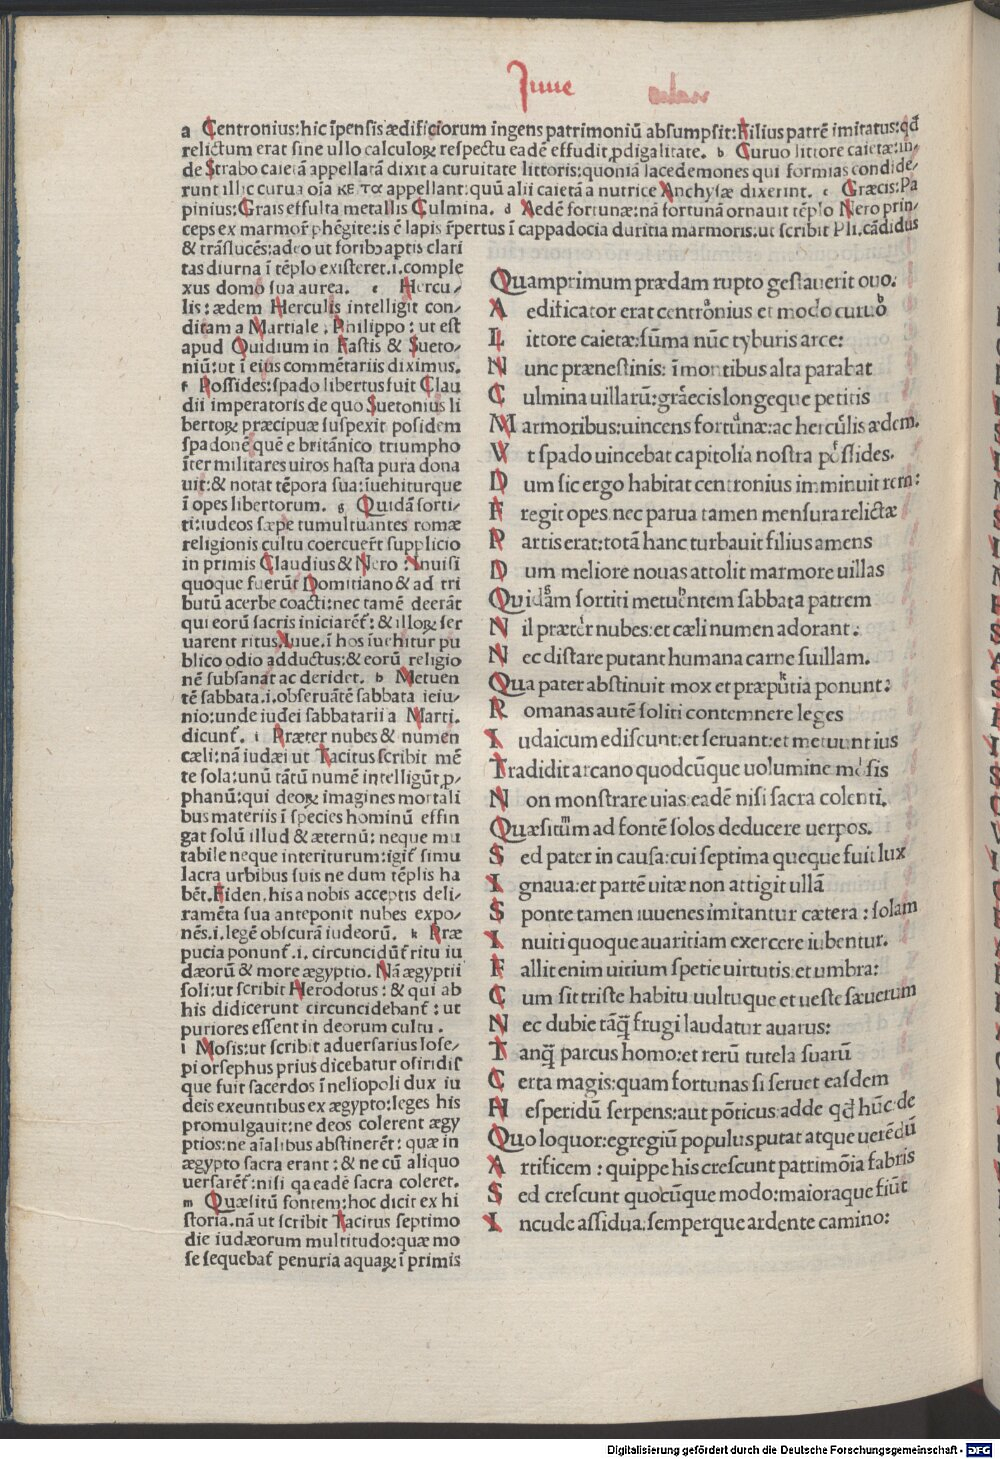 Juue
a Centronius:hic īpensis ædificiorum ingens patrimoniū absumpsit:Filius patrē imitatus:qđ
relictum erat sine ullo calculoꝝ respectu eadē effudit ꝓdigalitate. b Curuo littore caietæ:in⸗
de Strabo caietā appellatā dixit a curuitate littoris:quoniā lacedemones qui formias condide⸗
runt illic curua oīa κε τα appellant:quū alii caietā a nutrice Anchysæ dixerint. c Græcis:Pa
pinius:Grais effulta metallis Culmina. d Aedē fortunæ:nā fortunā ornauit tēplo Nero prin⸗
ceps ex marmoŕ phēgite:is ē lapis ŕpertus ī cappadocia duritia marmoris:ut scribit Pli.cādidus
& trāslucēs:adeo ut foribꝰ aptis clari
tas diurna ī tēplo existeret.i.comple
xus domo sua aurea. e Hercu⸗
lis:ædem Herculis intelligit con⸗
ditam a Martiale. Philippo: ut est
apud Ouidium in Fastis & Sueto⸗
niū:ut ī eius commētariis diximus.
f Possides:spado libertus fuit Clau
dii imperatoris de quo Suetonius li
bertoꝝ præcipuæ suspexit posidem
spadonē quē e britānico triumpho
īter militares uiros hasta pura dona
uit:& notat tēpora sua:īuehiturque
ī opes libertorum. g Quidā sorti⸗
ti:iudeos sæpe tumultuantes romæ
religionis cultu coercueŕt supplicio
in primis Claudius & Nero: Inuisi
quoque fuerūt Domitiano & ad tri
butū acerbe coacti:nec tamē deerāt
qui eorū sacris iniciareñt:& illoꝝ ser
uarent ritus.Iuue.ī hos īuehitur pu
blico odio adductus:& eorū religio
nē subsanat ac deridet. h Metuen
tē sabbata.i.obseruātē sabbata ieiu⸗
nio:unde iudei sabbatarii a Marti.
dicunt̃. i Præter nubes & numen
cæli:nā iudæi ut Tacitus scribit mē
te sola:unū tātū numē intelligūt,ꝓ⸗
phanū:qui deoꝝ imagines mortali
bus materiis ī species hominū effin
gat solū illud & æternū: neque mu
tabile neque interiturum:igit̃ simu
lacra urbibus suis ne dum tēplis ha
bēt.Fiden.his a nobis acceptis deli⸗
ramēta sua anteponit nubes expo⸗
nēs.i.legē obscurā iudeorū. k Præ
pucia ponunt̃.i.circuncidūt̃ ritu iu
dæorū & more ægyptio. Nā ægyptii
soli:ut scribit Herodotus: & qui ab
his didicerunt circuncidebant̃: ut
puriores essent in deorum cultu.
l Mosis:ut scribit aduersarius Iose⸗
pi orsephus prius dicebatur osiridis
que fuit sacerdos ī neliopoli dux iu
deis exeuntibus ex ægypto:leges his
promulgauit:ne deos colerent ægy
ptios:ne aīalibus abstinerēt: quæ in
ægypto sacra erant:& ne cū aliquo
uersarēt̃:nisi qa eadē sacra coleret.
m Quæsitū fontem:hoc dicit ex hi
storia.nā ut scribit Tacitus septimo
die iudæorum multitudo:quæ mo
se sequebat̃ penuria aquaꝝ ī primis
Quamprimum prædam rupto gestauerit ouo.
A edificator erat centronius et modo curuo
L ittore caietæ:sūma nūc tyburis arce:
N unc prænestinis: ī montibus alta parabat
C ulmina uillarū:græcis longeque petitis
M armoribus:uincens fortunæ:ac herculis ædem.
V t spado uincebat capitolia nostra possides.
D um sic ergo habitat centronius imminuit rem:
F regit opes nec parua tamen mensura relictæ
P artis erat:totā hanc turbauit filius amens
D um meliore nouas attolit marmore uillas
Quidam sortiti metuentem sabbata patrem
N il præter nubes:et cæli numen adorant.
N ec distare putant humana carne suillam.
Qua pater abstinuit mox et præputia ponunt:
R omanas autē soliti contemnere leges
I udaicum ediscunt:et seruant:et metuunt ius
Tradidit arcano quodcūque uolumine mosis
N on monstrare uias eadē nisi sacra colenti.
Quæsitum ad fontē solos deducere uerpos.
S ed pater in causa:cui septima queque fuit lux
I gnaua:et partē uitæ non attigit ullā
S ponte tamen iuuenes imitantur cætera: solam
I nuiti quoque auaritiam exercere iubentur.
F allit enim uitium spetie uirtutis et umbra:
C um sit triste habitu uultuque et ueste sæuerum
N ec dubie tāꝗ̃ frugi laudatur auarus:
T anꝗ̃ parcus homo:et rerū tutela suarū
C erta magis:quam fortunas si seruet easdem
H esperidū serpens:aut pōticus:adde qđ hūc de
Quo loquor:egregiū populus putat atque uerēdū
A rtificem: quippe his crescunt patrimōia fabris
S ed crescunt quocūque modo:maioraque fiūt
I ncude assidua:semperque ardente camino:
Digitalisierung gefördert durch die Deutsche Forschungsgemeinschaft - DFG